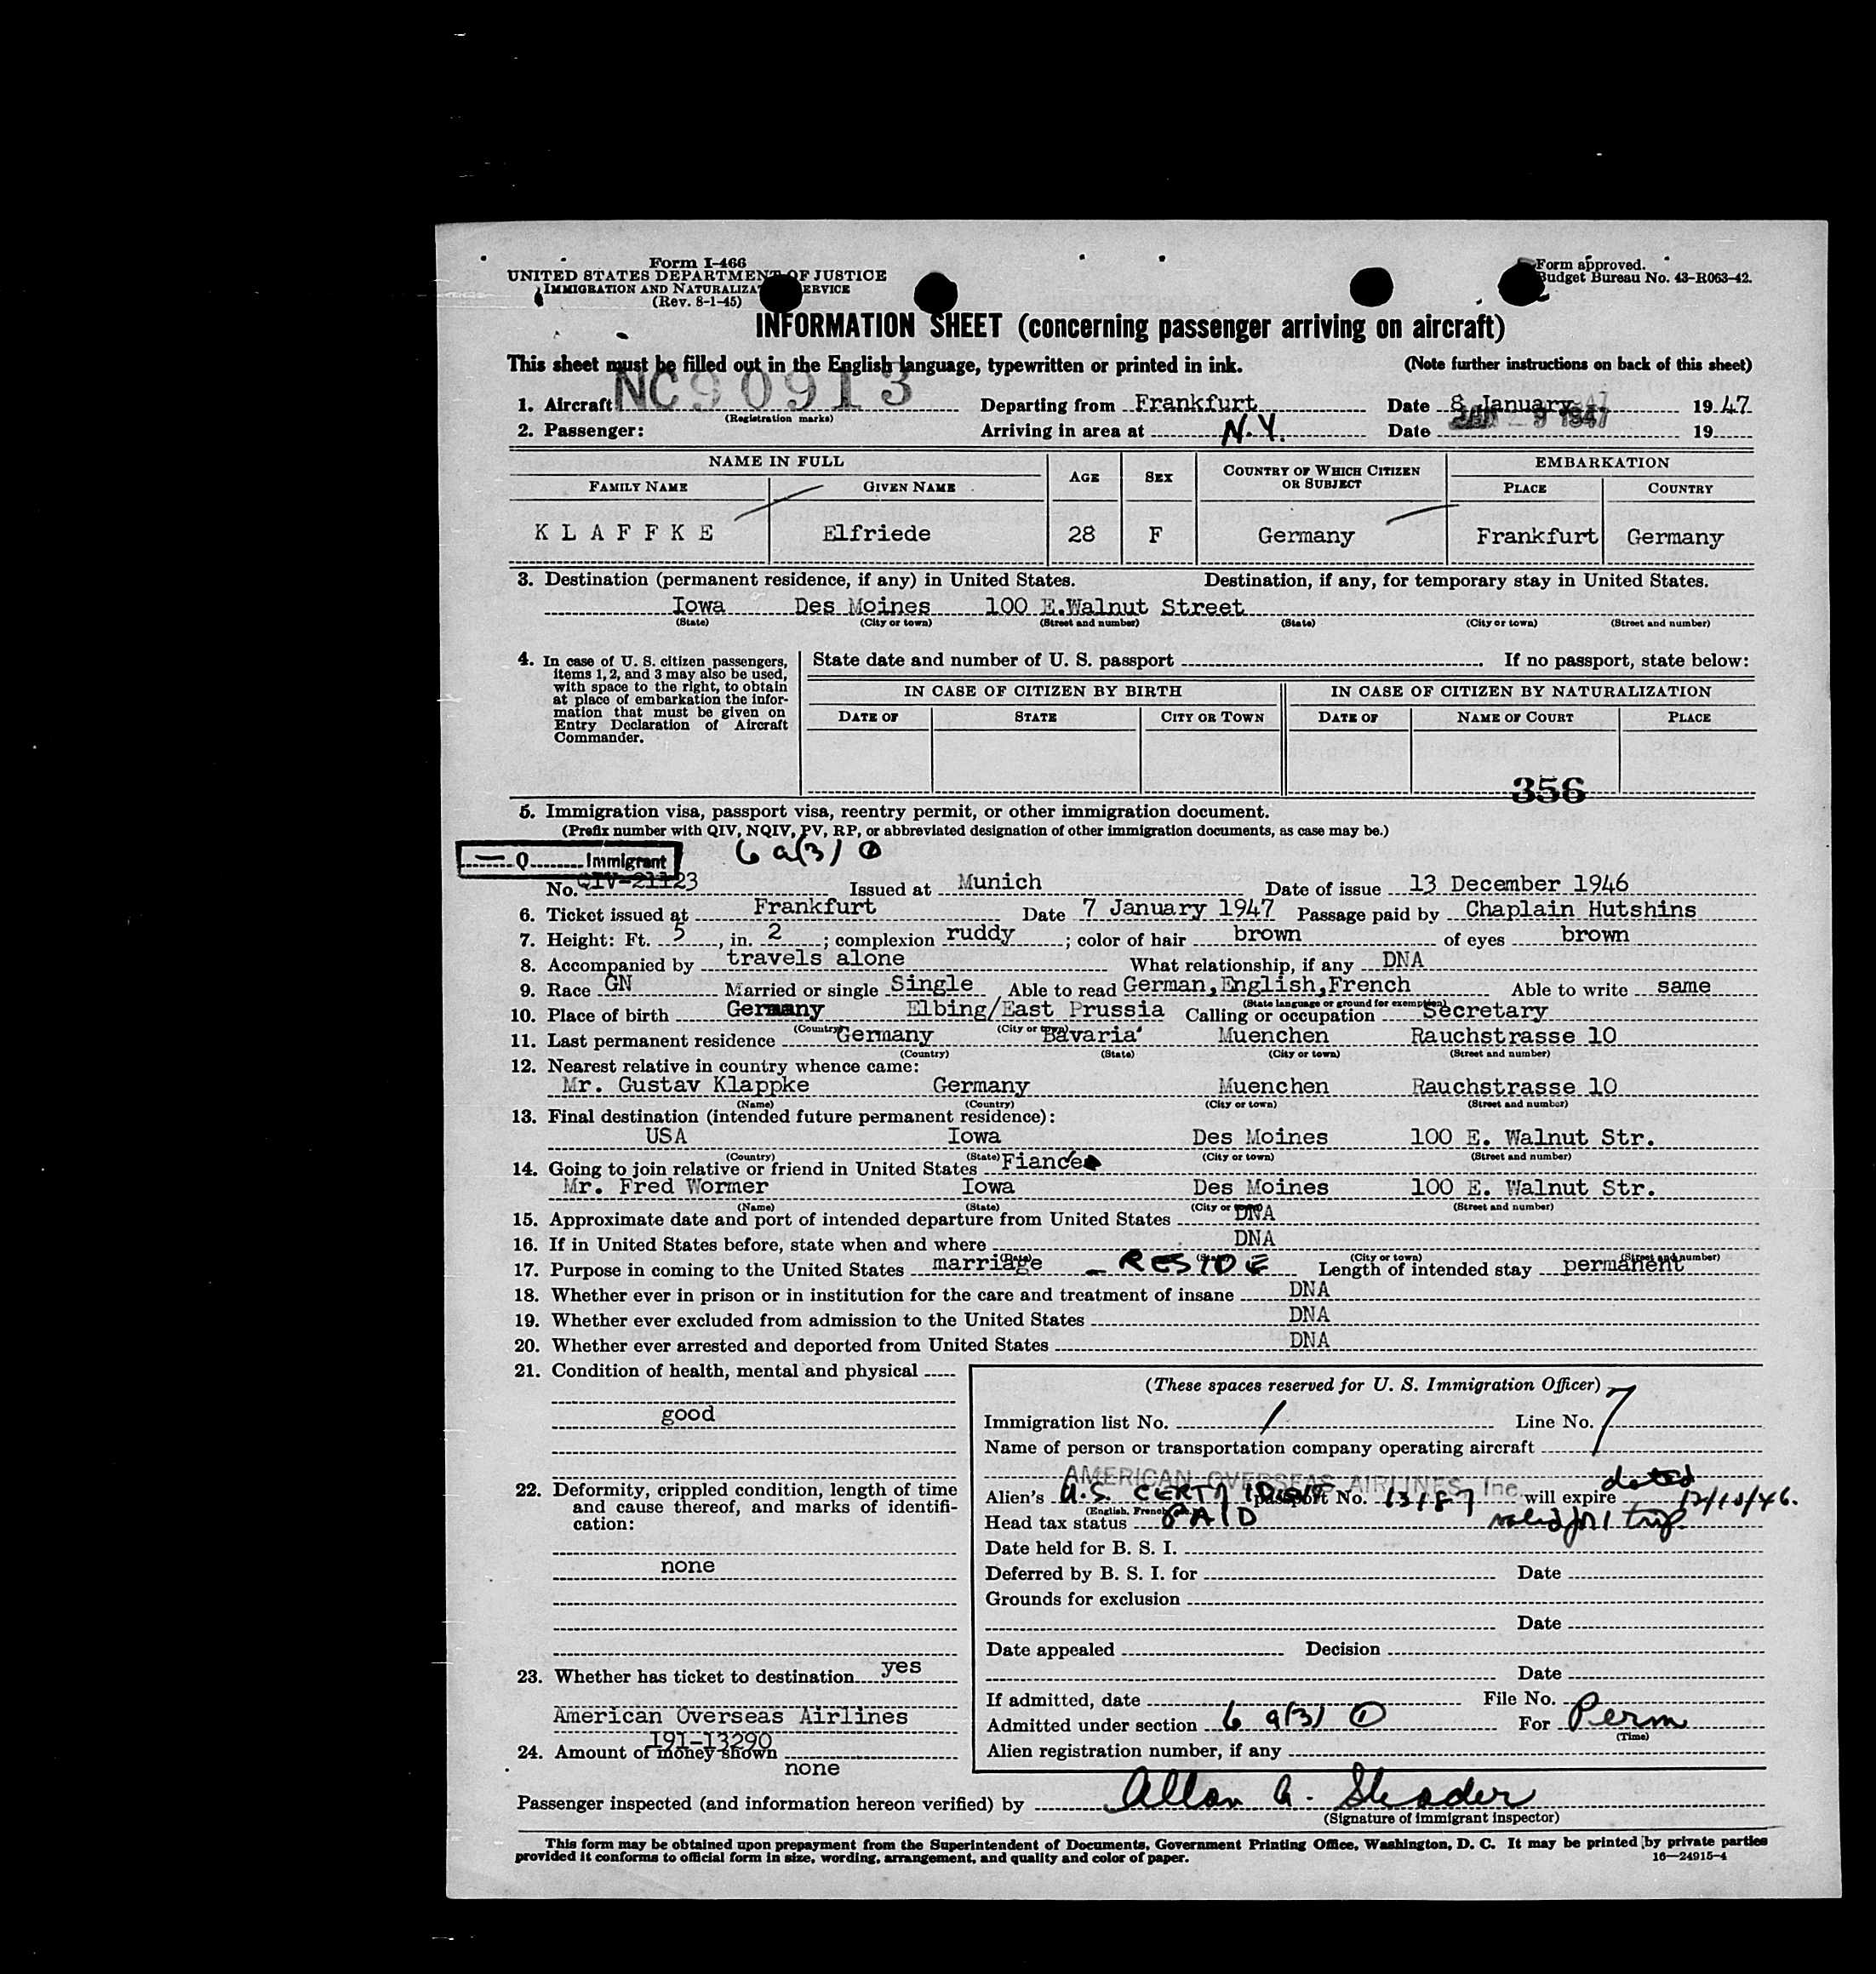 Form I-466
UNITED STATES DEPARTMENT OF JUSTICE
IMMIGRATION AND NATURALIZATION SERVICE
(Rev. 8-1-45)
Form approved.
Budget Bureau No. 43-R063-42.
INFORMATION SHEET (concerning passenger arriving on aircraft)
This sheet must be filled out in the English language, typewritten or printed in ink. (Note further instructions on back of this sheet)
1. Aircraft NC90913 Departing from Frankfurt Date 8 January 1947
(Registration marks)
2. Passenger: Arriving in area at N.Y. Date JAN - 9 1947 19
NAME IN FULL AGE SEX COUNTRY OF WHICH CITIZEN OR SUBJECT EMBARKATION
FAMILY NAME GIVEN NAME PLACE COUNTRY
KLAFFKE Elfriede 28 F Germany Frankfurt Germany
3. Destination (permanent residence, if any) in United States. Destination, if any, for temporary stay in United States.
Iowa Des Moines 100 E.Walnut Street
(State) (City or town) (Street and number) (State) (City or town) (Street and number)
4. In case of U. S. citizen passengers, items 1, 2, and 3 may also be used, with space to the right, to obtain at place of embarkation the information that must be given on Entry Declaration of Aircraft Commander.
State date and number of U. S. passport If no passport, state below:
IN CASE OF CITIZEN BY BIRTH IN CASE OF CITIZEN BY NATURALIZATION
DATE OF STATE CITY OR TOWN DATE OF NAME OF COURT PLACE
356
5. Immigration visa, passport visa, reentry permit, or other immigration document.
(Prefix number with QIV, NQIV, PV, RP, or abbreviated designation of other immigration documents, as case may be.)
Q Immigrant 6 a(3) ①
No. QIV-21123 Issued at Munich Date of issue 13 December 1946
6. Ticket issued at Frankfurt Date 7 January 1947 Passage paid by Chaplain Hutshins
7. Height: Ft. 5, in. 2; complexion ruddy; color of hair brown of eyes brown
8. Accompanied by travels alone What relationship, if any DNA
9. Race GN Married or single Single Able to read German,English,French Able to write same
(State language or ground for exemption)
10. Place of birth Germany Elbing/East Prussia Calling or occupation Secretary
(Country) (City or town)
11. Last permanent residence Germany Bavaria Muenchen Rauchstrasse 10
(Country) (State) (City or town) (Street and number)
12. Nearest relative in country whence came:
Mr. Gustav Klappke Germany Muenchen Rauchstrasse 10
(Name) (Country) (City or town) (Street and number)
13. Final destination (intended future permanent residence):
USA Iowa Des Moines 100 E. Walnut Str.
(Country) (State) (City or town) (Street and number)
14. Going to join relative or friend in United States Fiance
Mr. Fred Wormer Iowa Des Moines 100 E. Walnut Str.
(Name) (State) (City or town) (Street and number)
15. Approximate date and port of intended departure from United States DNA
16. If in United States before, state when and where DNA
(Date) (State) (City or town) (Street and number)
17. Purpose in coming to the United States marriage - RESIDE Length of intended stay permanent
18. Whether ever in prison or in institution for the care and treatment of insane DNA
19. Whether ever excluded from admission to the United States DNA
20. Whether ever arrested and deported from United States DNA
21. Condition of health, mental and physical
good
22. Deformity, crippled condition, length of time and cause thereof, and marks of identification:
none
23. Whether has ticket to destination yes
American Overseas Airlines
191-13290
24. Amount of money shown
none
(These spaces reserved for U. S. Immigration Officer)
Immigration list No. 1 Line No. 7
Name of person or transportation company operating aircraft
AMERICAN OVERSEAS AIRLINES, Inc
Alien's U.S. CERT/ passport No. 13187 will expire dated 12/10/46.
(English, French, etc.)
Head tax status PAID valid for 1 trip
Date held for B. S. I.
Deferred by B. S. I. for Date
Grounds for exclusion
Date
Date appealed Decision
Date
If admitted, date File No.
Admitted under section 6 a(3) ① For Perm
(Time)
Alien registration number, if any
Passenger inspected (and information hereon verified) by Allan A.
(Signature of immigrant inspector)
This form may be obtained upon prepayment from the Superintendent of Documents, Government Printing Office, Washington, D. C. It may be printed by private parties
provided it conforms to official form in size, wording, arrangement, and quality and color of paper. 16—24915-4